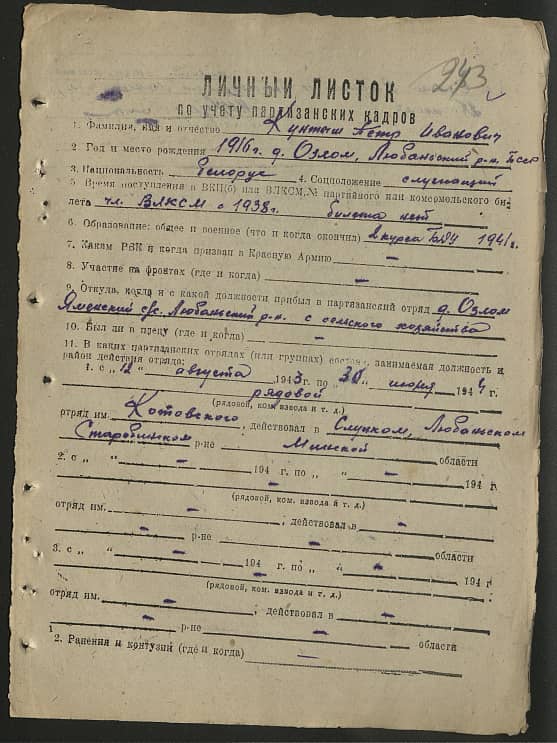 243
ЛИЧНЫЙ ЛИСТОК
по учету партизанских кадров
1. Фамилия, имя и отчество Кунтыш Петр Иванович
2. Год и место рождения 1916 г. д. Озлом, Любаньский р-н, БССР
3. Национальность белорус 4. Соцположение служащий
5. Время поступления в ВКП(б) или ВЛКСМ, № партийного или комсомольского би-
лета чл. ВЛКСМ с 1938г. билета нет
6. Образование: общее и военное (что и когда окончил) 2 курса 1941г.
7. Каким РВК и когда призван в Красную Армию —
8. Участие на фронтах (где и когда) —
9. Откуда, когда и с какой должности прибыл в партизанский отряд д. Озлом
Яменский с/с. Любаньский р-н. с сельского хозяйства
10. Был ли в плену (где и когда) —
11. В каких партизанских отрядах (или группах) состоял, занимаемая должность и
район действия отряда:
1. с „12 " августа 1943 г. по „30 " июня 1944 г.
рядовой
(рядовой, ком. взвода и т. д.)
отряд им. Котовского, действовал в Слуцком, Любаньском
Старобинском р-не Минской области
2. с „ " — 194 г. по „ " — 194 г.
—
(рядовой, ком. взвода и т. д.)
отряд им. —, действовал в —
— р-не — области
3. с „ " — 194 г. по „ " — 194 г.
—
(рядовой, ком. взвода и т. д.)
отряд им. —, действовал в —
— р-не — области
12. Ранения и контузии (где и когда) —